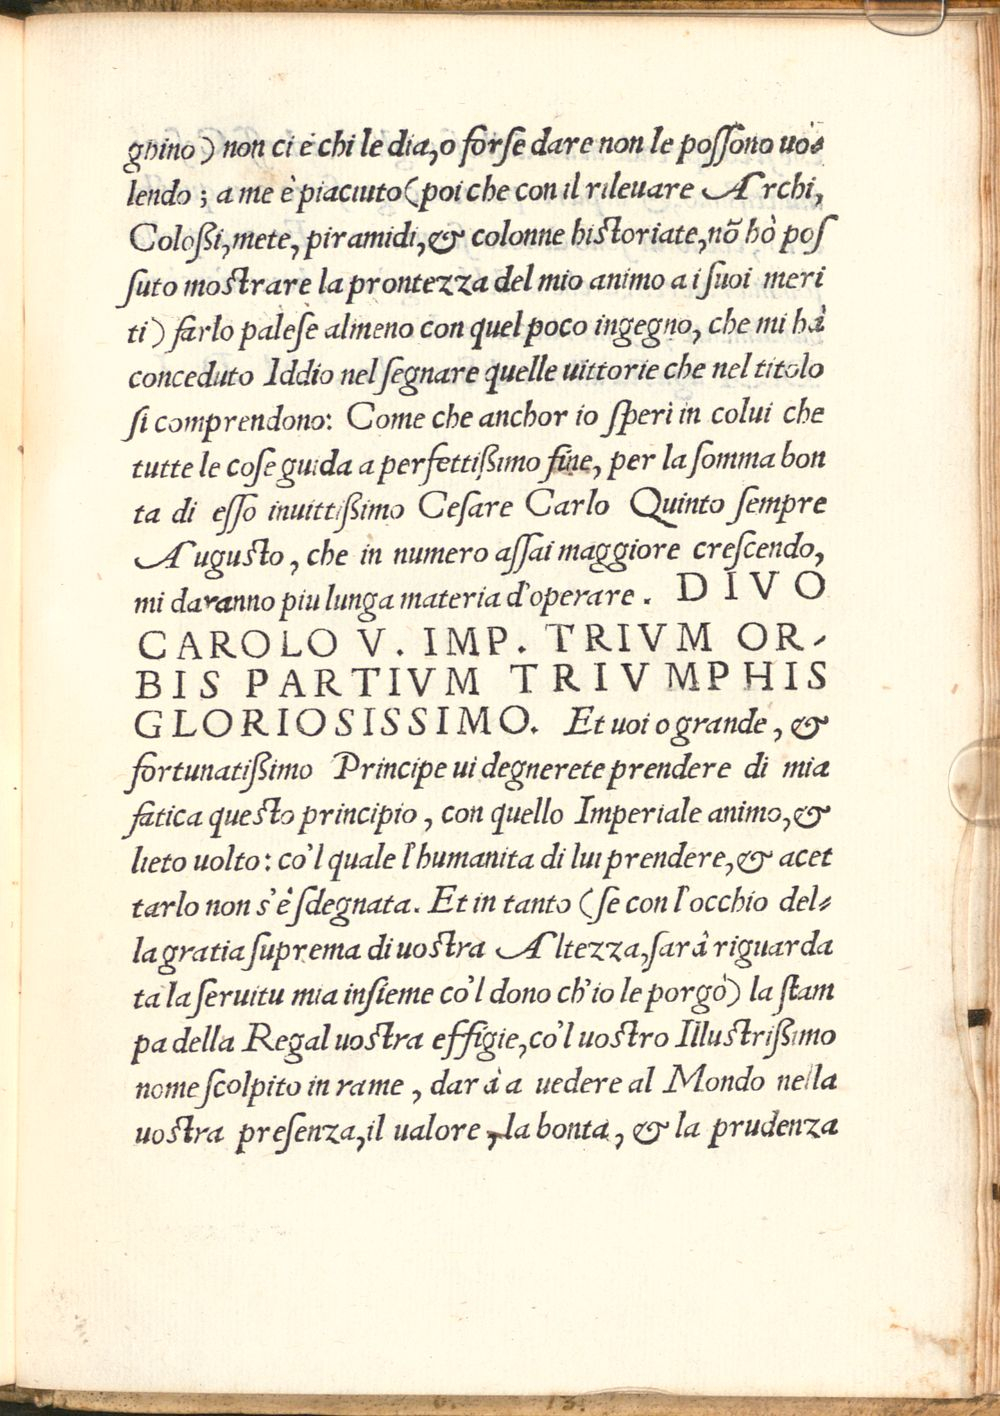 ghino) non ci è chi le dia, o forse dare non le possono uo-
lendo; a me è piaciuto (poi che con il rileuare Archi,
Colossi, mete, piramidi, & colonne historiate, nõ hò pos
suto mostrare la prontezza del mio animo a i suoi meri
ti) farlo palese almeno con quel poco ingegno, che mi hà
conceduto Iddio nel segnare quelle uittorie che nel titolo
si comprendono: Come che anchor io speri in colui che
tutte le cose guida a perfettissimo fine, per la somma bon
ta di esso inuittissimo Cesare Carlo Quinto sempre
Augusto, che in numero assai maggiore crescendo,
mi daranno piu lunga materia d'operare. DIVO
CAROLO V. IMP. TRIVM OR-
BIS PARTIVM TRIVMPHIS
GLORIOSISSIMO. Et uoi o grande, &
fortunatissimo Principe ui degnerete prendere di mia
fatica questo principio, con quello Imperiale animo, &
lieto uolto: co'l quale l'humanita di lui prendere, & acet
tarlo non s'è sdegnata. Et in tanto (se con l'occhio del-
la gratia suprema di uostra Altezza, sarà riguarda
ta la seruitu mia insieme co'l dono ch'io le porgo) la stam
pa della Regal uostra effigie, co'l uostro Illustrissimo
nome scolpito in rame, darà a uedere al Mondo nella
uostra presenza, il ualore, la bonta, & la prudenza